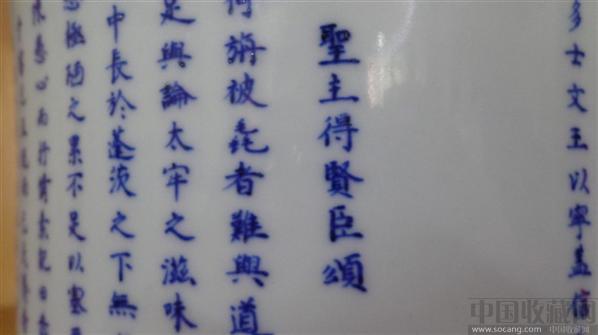 多士文王以寧蓋信
聖主得賢臣頌
荷旃被毳者難與道
足與論太牢之滋味
中長於蓬茨之下無
極陋之累不足以塞
愚心而抒情素記曰
中国收藏网
www.socang.com 中国收藏网